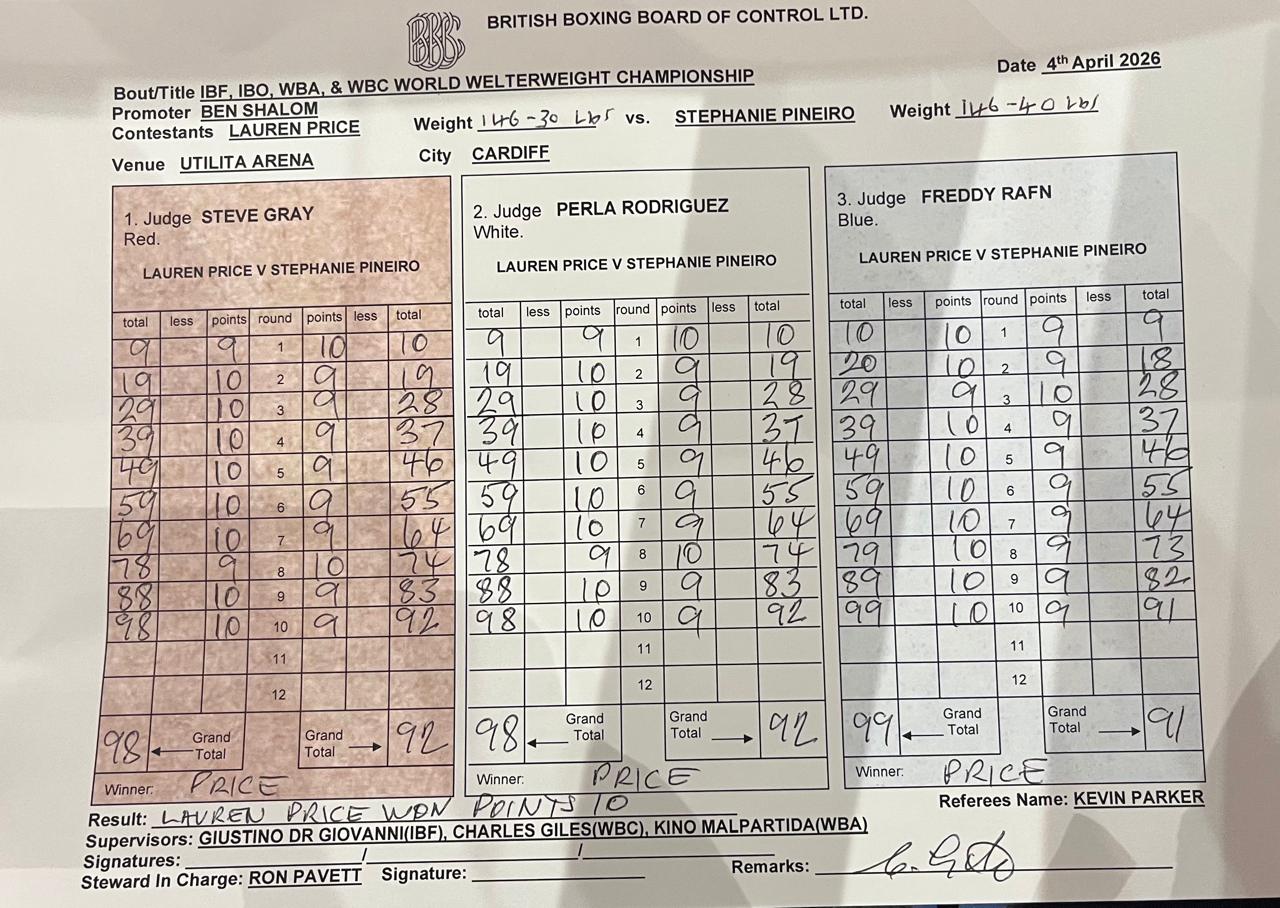 BBBC
BRITISH BOXING BOARD OF CONTROL LTD.
Bout/Title IBF, IBO, WBA, & WBC WORLD WELTERWEIGHT CHAMPIONSHIP
Date 4th April 2026
Promoter BEN SHALOM
Contestants LAUREN PRICE Weight 146-30 Lbs vs. STEPHANIE PINEIRO Weight 146-40 Lbs
Venue UTILITA ARENA City CARDIFF
1. Judge STEVE GRAY
Red.
LAUREN PRICE V STEPHANIE PINEIRO
total less points round points less total
9 9 1 10 10
19 10 2 9 19
29 10 3 9 28
39 10 4 9 37
49 10 5 9 46
59 10 6 9 55
69 10 7 9 64
78 9 8 10 74
88 10 9 9 83
98 10 10 9 92
11
12
98 ← Grand Total Grand Total → 92
Winner: PRICE
2. Judge PERLA RODRIGUEZ
White.
LAUREN PRICE V STEPHANIE PINEIRO
total less points round points less total
9 9 1 10 10
19 10 2 9 19
29 10 3 9 28
39 10 4 9 37
49 10 5 9 46
59 10 6 9 55
69 10 7 9 64
78 9 8 10 74
88 10 9 9 83
98 10 10 9 92
11
12
98 ← Grand Total Grand Total → 92
Winner: PRICE
3. Judge FREDDY RAFN
Blue.
LAUREN PRICE V STEPHANIE PINEIRO
total less points round points less total
10 10 1 9 9
20 10 2 9 18
29 9 3 10 28
39 10 4 9 37
49 10 5 9 46
59 10 6 9 55
69 10 7 9 64
79 10 8 9 73
89 10 9 9 82
99 10 10 9 91
11
12
99 ← Grand Total Grand Total → 91
Winner: PRICE
Result: LAUREN PRICE WON POINTS 10
Referees Name: KEVIN PARKER
Supervisors: GIUSTINO DR GIOVANNI(IBF), CHARLES GILES(WBC), KINO MALPARTIDA(WBA)
Signatures: / /
Steward In Charge: RON PAVETT Signature: Remarks: